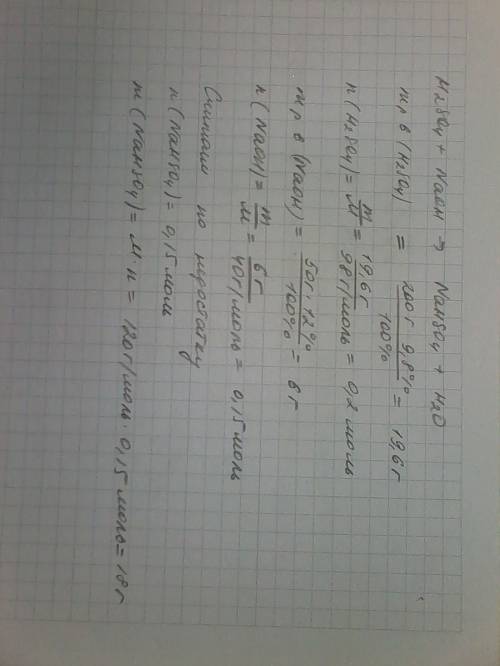 H₂SO₄ + NaOH → NaHSO₄ + H₂O
m р в (H₂SO₄) = 200г 9,8% / 100% = 19,6 г
n (H₂SO₄) = m/M = 19,6г / 98г/моль = 0,2 моль
m р в (NaOH) = 50г · 12% / 100% = 6 г
n (NaOH) = m/M = 6 г / 40г/моль = 0,15 моль
Считаем по недостатку
n (NaHSO₄) = 0,15 моль
m (NaHSO₄) = M · n = 120г/моль · 0,15 моль = 18 г